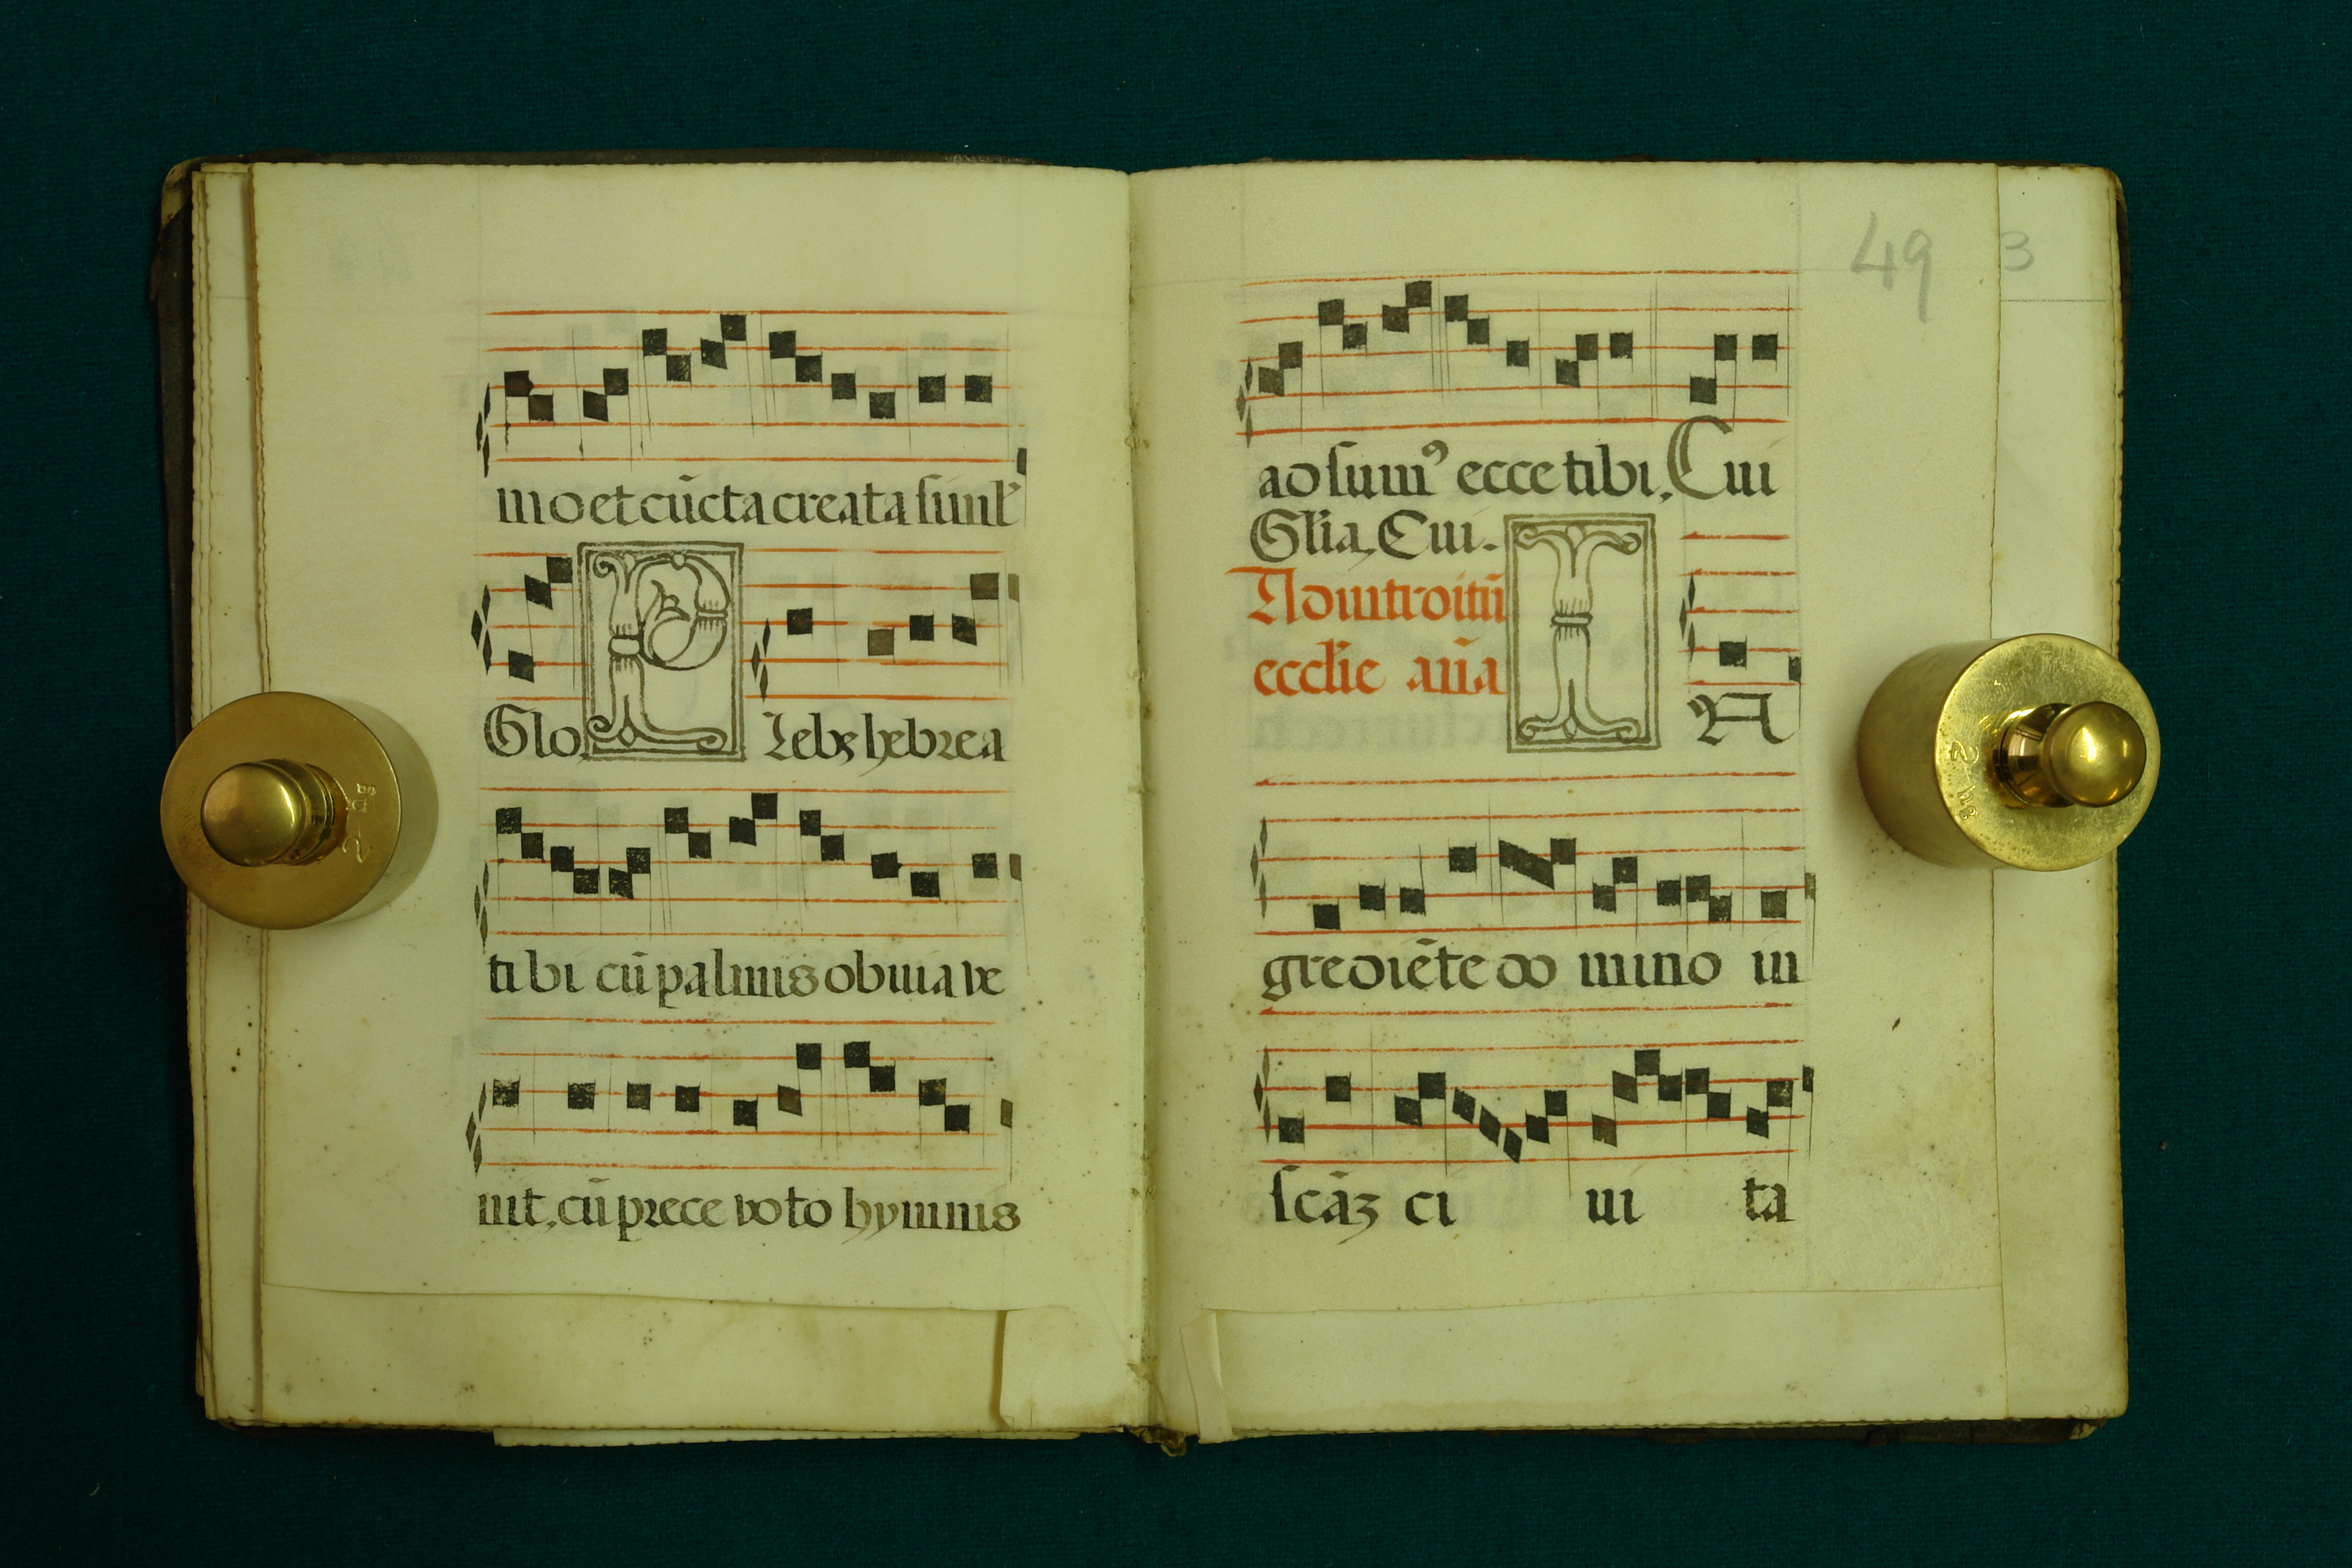 mo et cūcta creata simľ
Glo. P Lebs hebrea
tibi cū palmis obuia ve
nit, cū prece voto hymnis
49
3
adsumꝰ ecce tibi. Cui
Gľia. Cui.
Ad introitū I
eccľie an̄a N
grediēte do mino in
scāꝫ ci ui ta
2 hg
2 hg